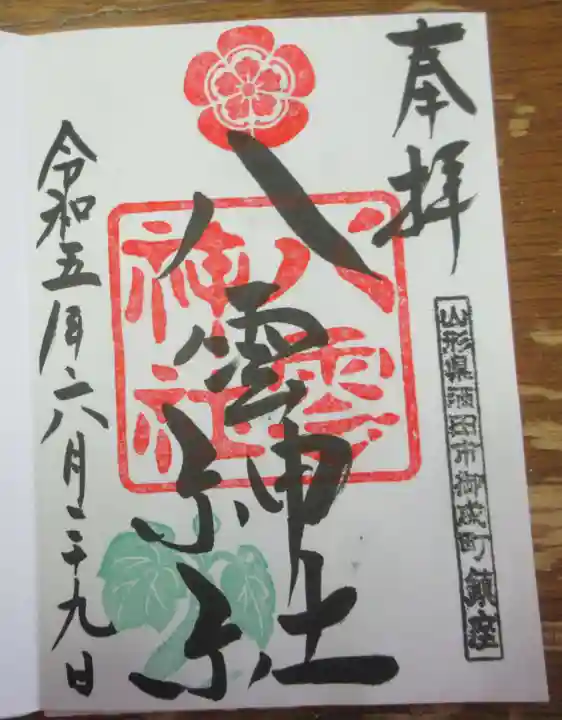 奉拝
山形県酒田市御成町鎮座
八雲神社
八雲
神社
令和五年六月二十九日